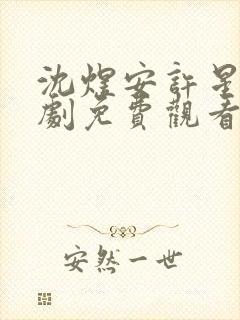 沈煜安許星
劇免費觀看
安然一世